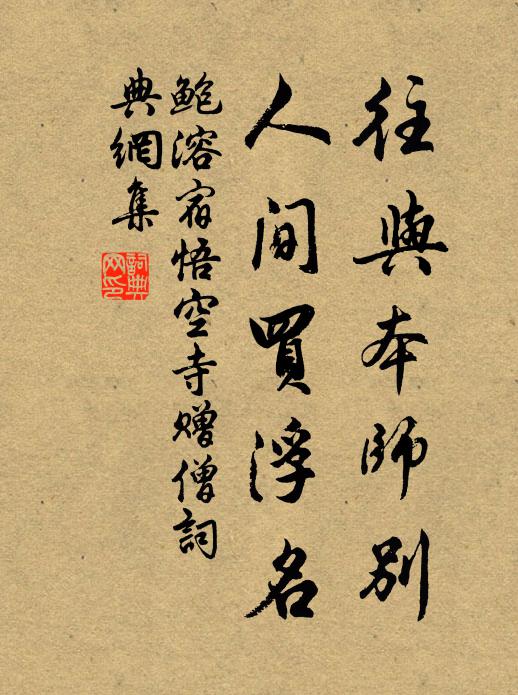 往與本師別
人間買浮名
鮑溶宿悟空寺贈僧詞
典網集
詞典
网印